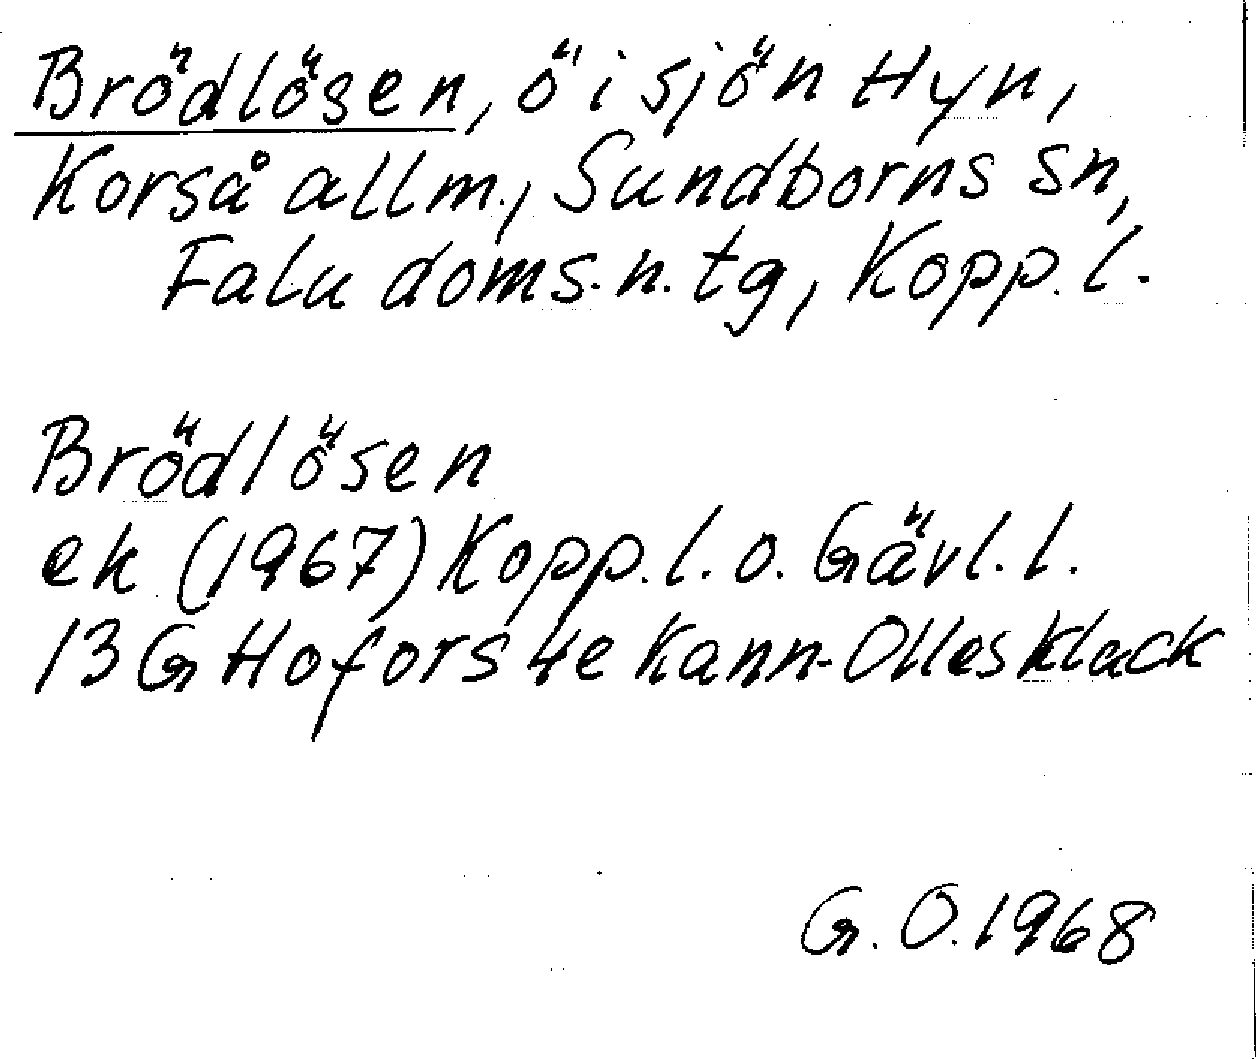 Brödlösen, ö i sjön Hyn,
Korså allm., Sundborns sn,
Falu doms.n. tg, Kopp. l.
Brödlösen
ek (1967) Kopp. l. o. Gävl. l.
13 G Hofors 4e Kann-Olles klack
G. O. 1968